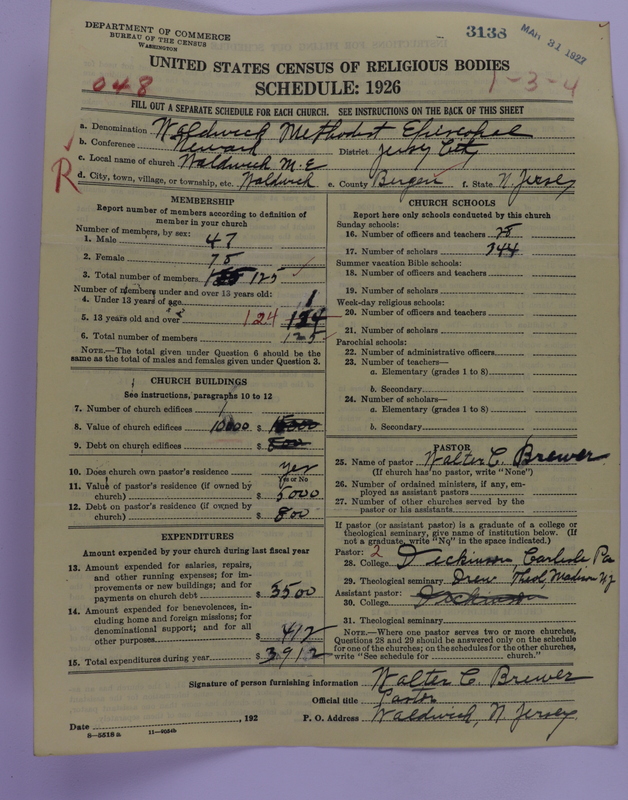 DEPARTMENT OF COMMERCE
BUREAU OF THE CENSUS
WASHINGTON
3138
MAR 31 1927
UNITED STATES CENSUS OF RELIGIOUS BODIES
SCHEDULE: 1926
048
1-3-4
FILL OUT A SEPARATE SCHEDULE FOR EACH CHURCH. SEE INSTRUCTIONS ON THE BACK OF THIS SHEET
a. Denomination Waldwick Methodist Episcopal
b. Conference Newark District Jersey City
c. Local name of church Waldwick M.E
R
d. City, town, village, or township, etc. Waldwick e. County Bergen f. State N. Jersey
MEMBERSHIP
Report number of members according to definition of
member in your church
Number of members, by sex:
1. Male 47
2. Female 78
3. Total number of members 125
Number of members under and over 13 years old:
4. Under 13 years of age 1
5. 13 years old and over 124 124
6. Total number of members 125
NOTE.—The total given under Question 6 should be the
same as the total of males and females given under Question 3.
CHURCH BUILDINGS
See instructions, paragraphs 10 to 12
7. Number of church edifices 1
8. Value of church edifices 10000 $ 15000
9. Debt on church edifices $ 800
10. Does church own pastor's residence yes
Yes or No
11. Value of pastor's residence (if owned by
church) $ 5000
12. Debt on pastor's residence (if owned by
church) $ 800
EXPENDITURES
Amount expended by your church during last fiscal year
13. Amount expended for salaries, repairs,
and other running expenses; for im-
provements or new buildings; and for
payments on church debt $ 3500
14. Amount expended for benevolences, in-
cluding home and foreign missions; for
denominational support; and for all
other purposes $ 412
15. Total expenditures during year $ 3912
CHURCH SCHOOLS
Report here only schools conducted by this church
Sunday schools:
16. Number of officers and teachers 28
17. Number of scholars 344
Summer vacation Bible schools:
18. Number of officers and teachers
19. Number of scholars
Week-day religious schools:
20. Number of officers and teachers
21. Number of scholars
Parochial schools:
22. Number of administrative officers
23. Number of teachers—
a. Elementary (grades 1 to 8)
b. Secondary
24. Number of scholars—
a. Elementary (grades 1 to 8)
b. Secondary
PASTOR
25. Name of pastor Walter C. Brewer
(If church has no pastor, write "None")
26. Number of ordained ministers, if any, em-
ployed as assistant pastors
27. Number of other churches served by the
pastor or his assistants
If pastor (or assistant pastor) is a graduate of a college or
theological seminary, give name of institution below. (If
not a graduate, write "No" in the space indicated.)
Pastor: 2
28. College Dickinson, Carlisle Pa
29. Theological seminary Drew Theol, Madison N.J
Assistant pastor:
30. College Dickinson
31. Theological seminary
NOTE.—Where one pastor serves two or more churches,
Questions 28 and 29 should be answered only on the schedule
for one of the churches; on the schedules for the other churches,
write "See schedule for church."
Signature of person furnishing information Walter C. Brewer
Official title Pastor
Date , 192 P. O. Address Waldwick, N. Jersey.
8—5518 a 11—9034b